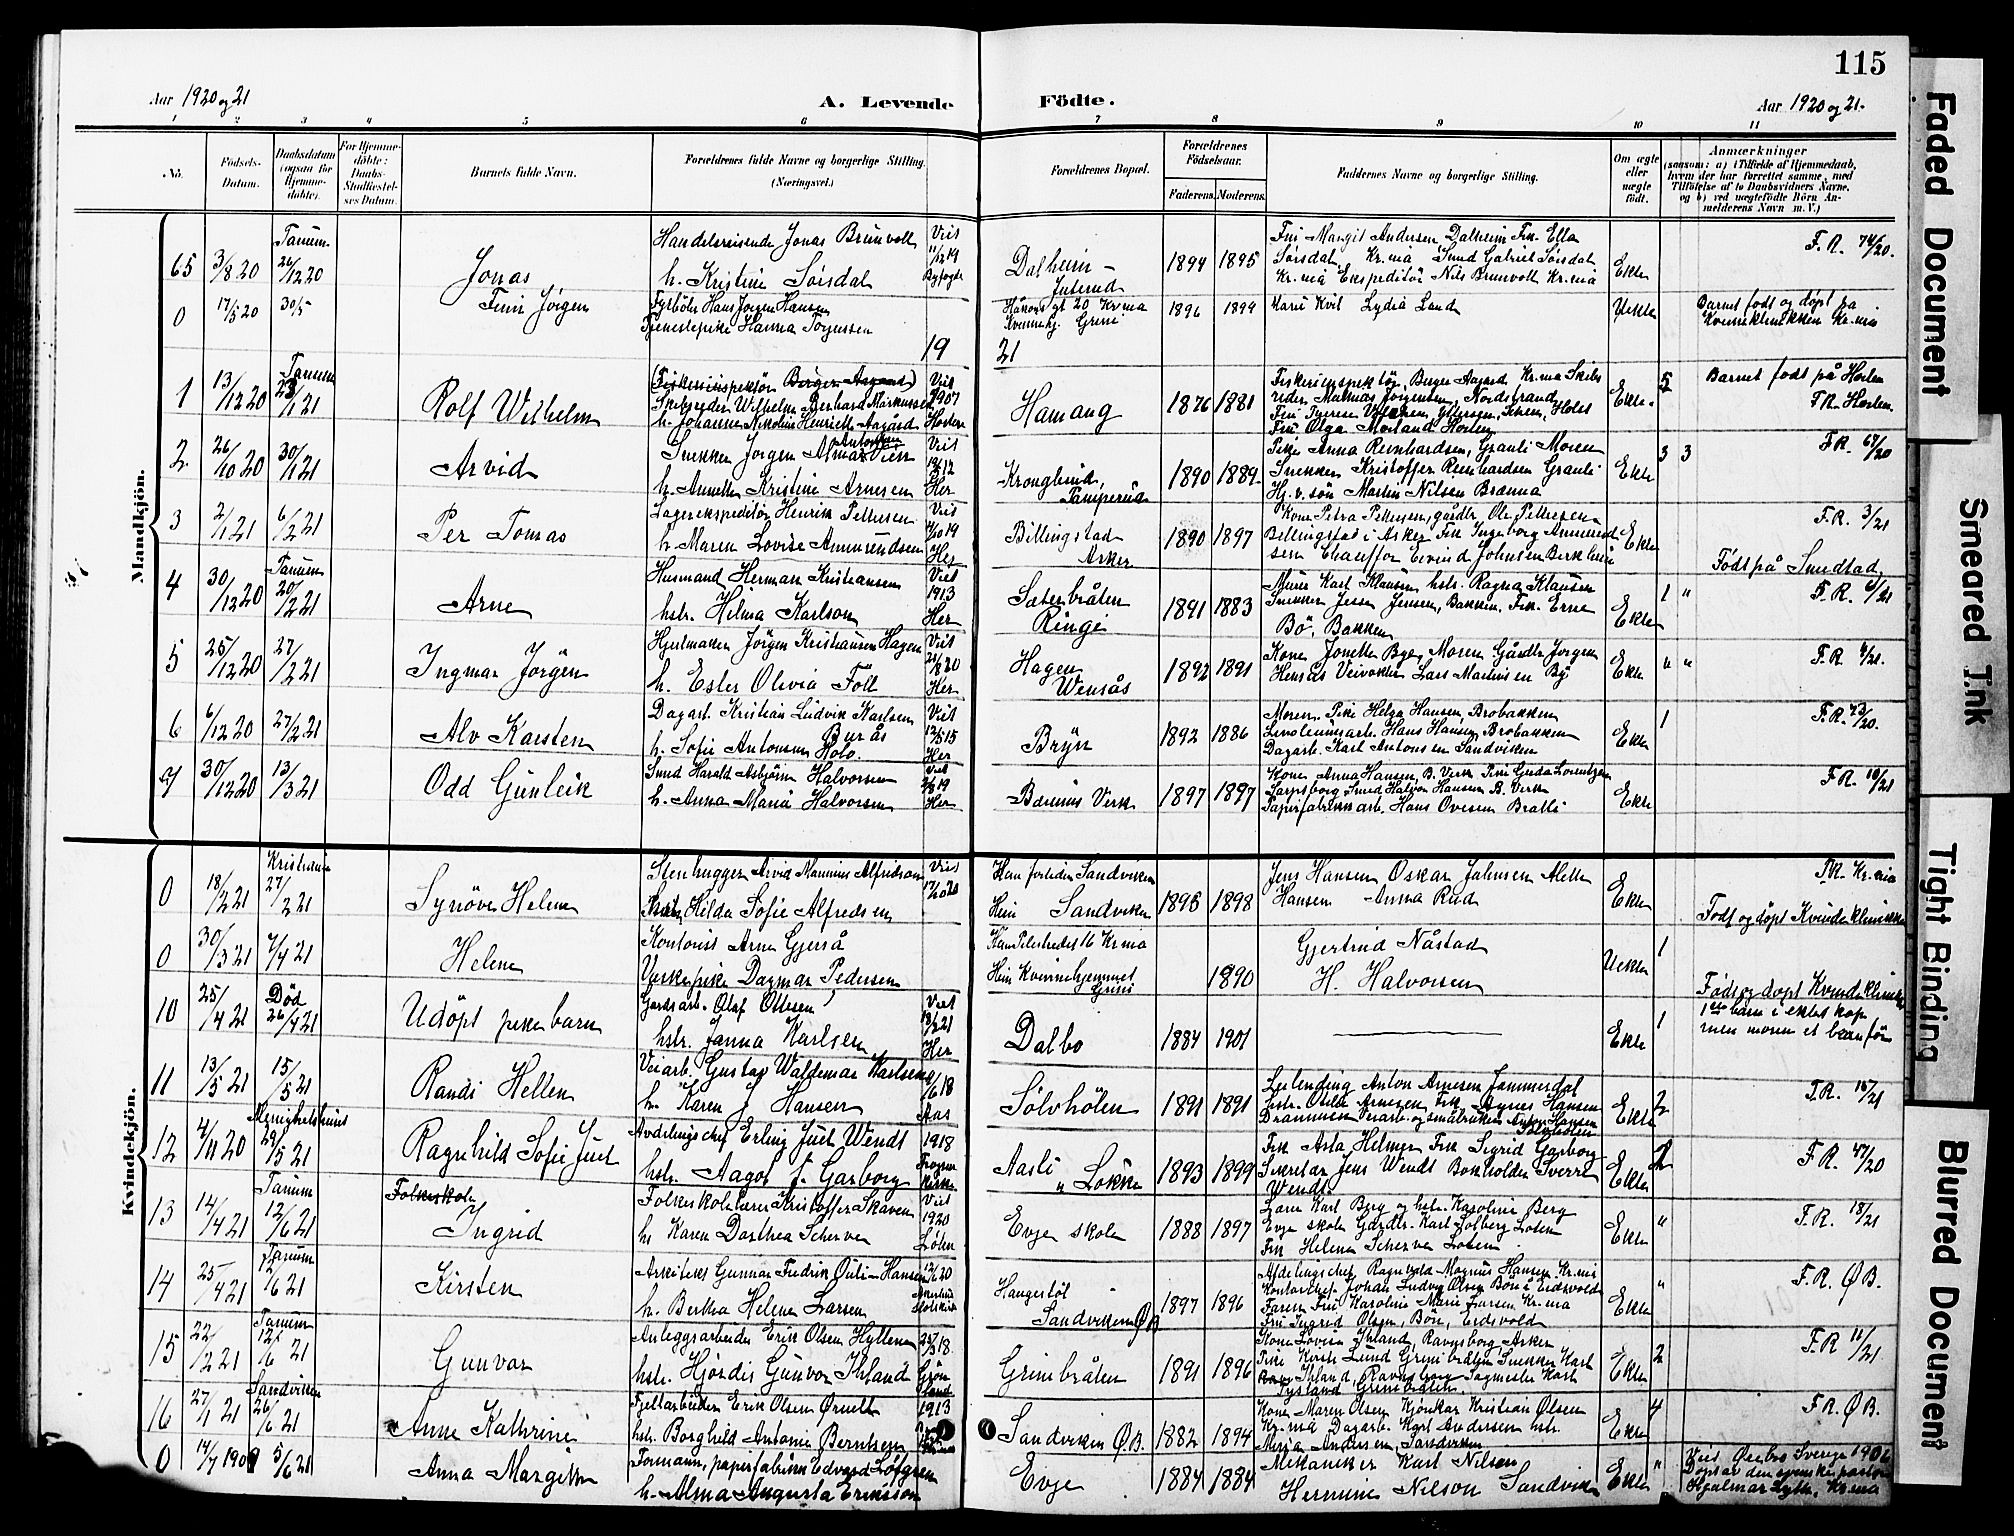 115
Aar 1920 og 21
A. Levende Födte.
Aar 1920 og 21.
1 2 3 4 5 6 7 8 9 10 11
No.
Födsels-Datum.
Daabsdatum (ogsaa for Hjemme-döbte).
For Hjemme-döbte: Daabs-Stadfæstel-ses Datum.
Barnets fulde Navn.
Forældrenes fulde Navne og borgerlige Stilling. (Næringsvei.)
Forældrenes Bopæl.
Forældrenes Födselsaar.
Faderens. Moderens.
Faddernes Navne og borgerlige Stilling.
Om ægte eller uægte födt.
Anmærkninger
(saasom: a) i Tilfælde af Hjemmedaab, hvem der har forrettet samme, med Tilföielse af to Daabsvidners Navne, og b) ved uægtefödte Börn An-melderens Navn m. V.)
Mandkjön.
65 3/8 20 Tanum 26/12 20 Jonas
Handelsreisende Jonas Brunvoll
h. Kristine Sörsdal
Viet 11/12 19 Byfogd
Dalheim - Jnterud
1894 1895
Fru Margit Andersen, Dalheim Frk. Ella
Sörsdal, Kr.nia Smed Gabriel Sörsdal
Kr.nia Ekspeditör Nils Brunvoll Kr.nia
Ekte
F.R. 74/20.
0 17/5 20 30/5 Finn Jörgen
Fyrböter Hans Jörgen Hansen
Tjenestepike Hanna Torgersen
Kvinnehj. Grini
1896 1899
Marie Kvil Lydia Lund
Uekte
Barnet født og døpt på
Kvinneklinikken Kr.nia
19 21
1 13/12 20 Tanum 23/1 21 Rolf Wilhelm
(Fiskeriinspektör Birger Aagaard)
Skibsreder Wilhelm Bernhard Markussen
h. Johanne Nikoline Henriette Aagård
Viet 1907 Horten
Hamang
1876 1881
Fru Olga Morland Horten
Ekte.
5
Barnet født på Horten
F.R. Horten.
2 26/10 20 30/1 21 Arvid
Snekker Jörgen Antonsen
h. Annette Kristine Arnesen
Viet 12 Her
Kronglund, Tamperud
1890 1889
Pike Anna Reinhardsen, Granli Moren
Snekker Kristoffer Reinhardsen Granli
Hj.v. sön Martin Nilsen Brænna
Ekte
3 3
F.R. 67/20
3 2/1 21 6/2 21 Per Tomas
Lagerekspeditör Henrik Pettersen
h. Maren Lovise Amundsen
Viet 10 19 Her
Billingstad Asker
1890 1897
Kone Petra Pettersen, gårdbr. Ole Pettersen
Billingstad i Asker Frk. Ingeborg Amund
sen Chauffør Eivind Johnsen
Ekte
F.R. 3/21
4 30/12 20 Tanum 20/2 21 Arne
Husmand Herman Kristiansen
hstr. Helma Karlson
Viet 1913 Her
Sæterbråten Ringi
1891 1883
Murer Karl Klausen hstr. Ragna Klausen
Snekker Jessen Jensen, Bakken, Frk. Erne
Bö, Bakken
Ekte
1 "
Født på Smestad
F.R. 6/21
5 25/12 20 27/2 21 Ingmar Jörgen
Hjulmaker Jörgen Kristiansen Hagen
h. Ester Olivia Foll
Viet 20 Her
Hagen Wensås
1892 1891
Kone Jonette Bye, Moren Gårdbr. Jörgen
Hensås Veivokter Lars Martinsen By
Ekte
" "
F.R. 4/21.
6 6/12 20 27/2 21 Alv Karsten
Dagarb. Kristian Ludvik Karlsen
h. Sofie Antonsen Holo
Viet 12/5 15 Her
Bryn
1892 1886
Moren. Pike Helga Hansen, Brobakken
Linoleumsarb. Hans Hansen Brobakken
Dagarb. Karl Antonsen Sandviken
Ekte
1
F.R. 73/20.
7 30/12 20 13/3 21 Odd Gunleik
Smed Harald Asbjörn Halvorsen
h. Anna Maria Halvorsen
Viet 19 Her
Bærums Verk
1897 1897
Kone Anna Hansen, B. Verk Pike Gerda Lorentzen
Sarpsborg Smed Halvor Hansen B. Verk
Papirfabrikkarb. Hans Ovesen Bratli
Ekte
F.R. 10/21
Kvindekjön.
0 18/2 21 Kristiania 27/2 21 Synöve Helene
Stenhugger Arvid Manninus Alfredson
Hilda Sofie Alfredsen
Viet 17/10 20
Han fortiden Sandviken
Hun Sandviken
1898 1898
Jens Hansen Oskar Johnsen Alette
Hansen Anna Rud
Ekte
F.R. Kr.nia
Født og døpt Kvindeklinikken
0 30/3 21 7/4 21 Helene
Kontorist Arne Gjerså
Vaskepike Dagmar Pedersen
Han Pilestredet 16 Kr.nia
Hun Kvinnehjemmet Grini
1890
Gjertrud Nåstad
H. Halvorsen
Uekte
1
Født og døpt Kvindeklinikken
10 25/4 21 Död 26/4 21 Udöpt pikebarn
Gårdsarb. Olaf Ottesen
hstr. Janna Karlsen
Viet 13/2 21 Her
Dalbo
1884 1901
Ekte
1
1ste barn i ekteskap
men moren et barn før
11 13/5 21 15/5 21 Randi Hellen
Veiarb. Gustav Waldemar Karlsen
h. Karen J. Hansen
6 18 Aas
Sölvhölen
1891 1891
Leilending Anton Arnesen Jammerdal
hstr. Otilie Arnesen Frk. Agnes Hansen
Drammen Veiarb. og småbruker Anton Hansen
Sölvhölen
Ekte
2
F.R. 15/21
12 4/11 20 Menighetshuset 29/5 21 Ragnhild Sofie Juel
Avdelingschef Erling Juel Wendt
hstr. Aagot f. Garborg
1918 Frogner kirke
Aasli " Løkke
1893 1899
Frk. Asta Helmer Frk Sigrid Garborg
Sekretær Jens Wendt Bokholder Sverre
Wendt.
Ekte
2
F.R. 47/20
13 14/4 21 Tanum 12/6 21 Folkeskole Ingrid
Folkeskolelærer Kristoffer Skaven
h. Karen Dorthea Scherven
Viet 1920 Löten
Evje skole
1888 1897
Lærer Karl Berg og hstr. Karoline Berg
Evje skole Gårdbr. Karl Solberg Løten
Frk Helene Scherven Løten
Ekte
"
F.R. 18/21
14 25/4 21 Tanum 12/6 21 Kirsten
Arkitekt Gunnar Fredrik Outi-Hansen
h. Bertha Helene Larsen
12/6 20 Akershus slotskirke
Haugestöl Sandviken ØB
1897 1896
Afdelingschef Ragnvald Magnus Hansen Kr.nia
Kontorchef Johan Ludvig Olsen Bön i Eidsvold
Faren Fru Karoline Marie Larsen Kr.nia
Fru Ingrid Olsen, Bön, Eidsvold
Ekte
"
F.R. ØB.
15 22/2 21 Tanum 12/6 21 Gunvor
Anleggsarbeider Erik Olsen Hyllen
hstr. Hjördis Gunvor Ihland
25/3 18 Grönland
Grinibråten
1891 1896
Kone Lovise Ihland, Ravnsborg Asker
Pike Kirsti Lund Grinibråten Snekker Karl
Ihland, Ravnsborg Sagmester Karl
Tysland, Grinibråten.
Ekte
2
F.R 11/21
16 27/1 21 Sandviken 26/6 21 Anne Kathrine
Fjellarbeider Erik Olsen Ørnelt
hstr. Borghild Antonie Berntsen
1913
Sandviken ØB.
1882 1894
Kone Maren Olsen Kjönkar Kristian Olsen
Kr.nia Dagarb. Karl Andersen hstr.
Merja Andersen, Sandviken
Ekte
4
F.R. ØB.
0 14/7 1909 5/6 21 Anna Margitte
Formann, papirfabrikk Edvard Löfgren
h. Alma Augusta Eriksson
Evje
1884 1884
Mekaniker Karl Nilsen
Hermine Nilson Sandviken
Ekte
"
Viet Örebro Sverige 1906
Døpt av den svenske pastor
Hjalmar Lyth, Kr.nia
Faded Document
Smeared Ink
Tight Binding
Blurred Document